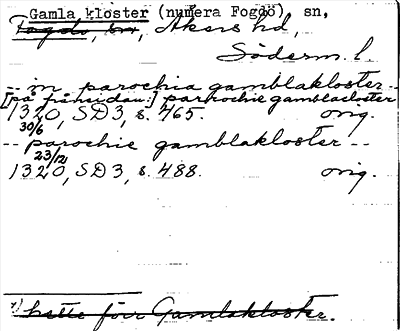 Gamla kloster (numera Fogdö), sn,
Fogdö, sn, Åkers hd,
Söderm. l.
-- in parochia gamblakloster --
[på frånsidan:] parrochie gamblacloster
1320, SD3, s. 465. orig.
30/6
-- parochie gamblakloster --
23/12
1320, SD3, s. 488. orig.
1) hette förr Gamlakloster.